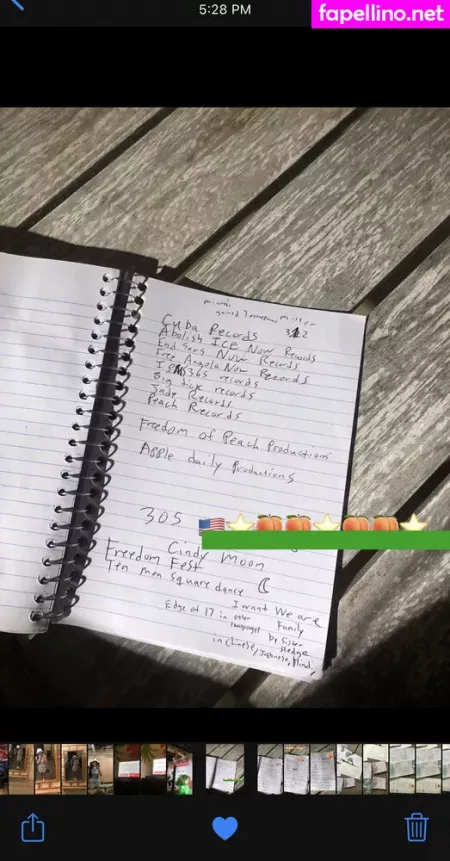 5:28 PM
fapellino.net
Cuba Records 312
Abolish ICE Now Records
End Sars Now Records
Free Angola Now Records
records
Big dick records
Jade Records
Peach Records
Freedom of Peach Productions
Apple daily Productions
305
Cindy Moon
Freedom Fest
Ten men Square dance
I want We are
Edge of 17 in other Family
languages by Sister
Sledge
in Chinese, Japanese, Hindi,